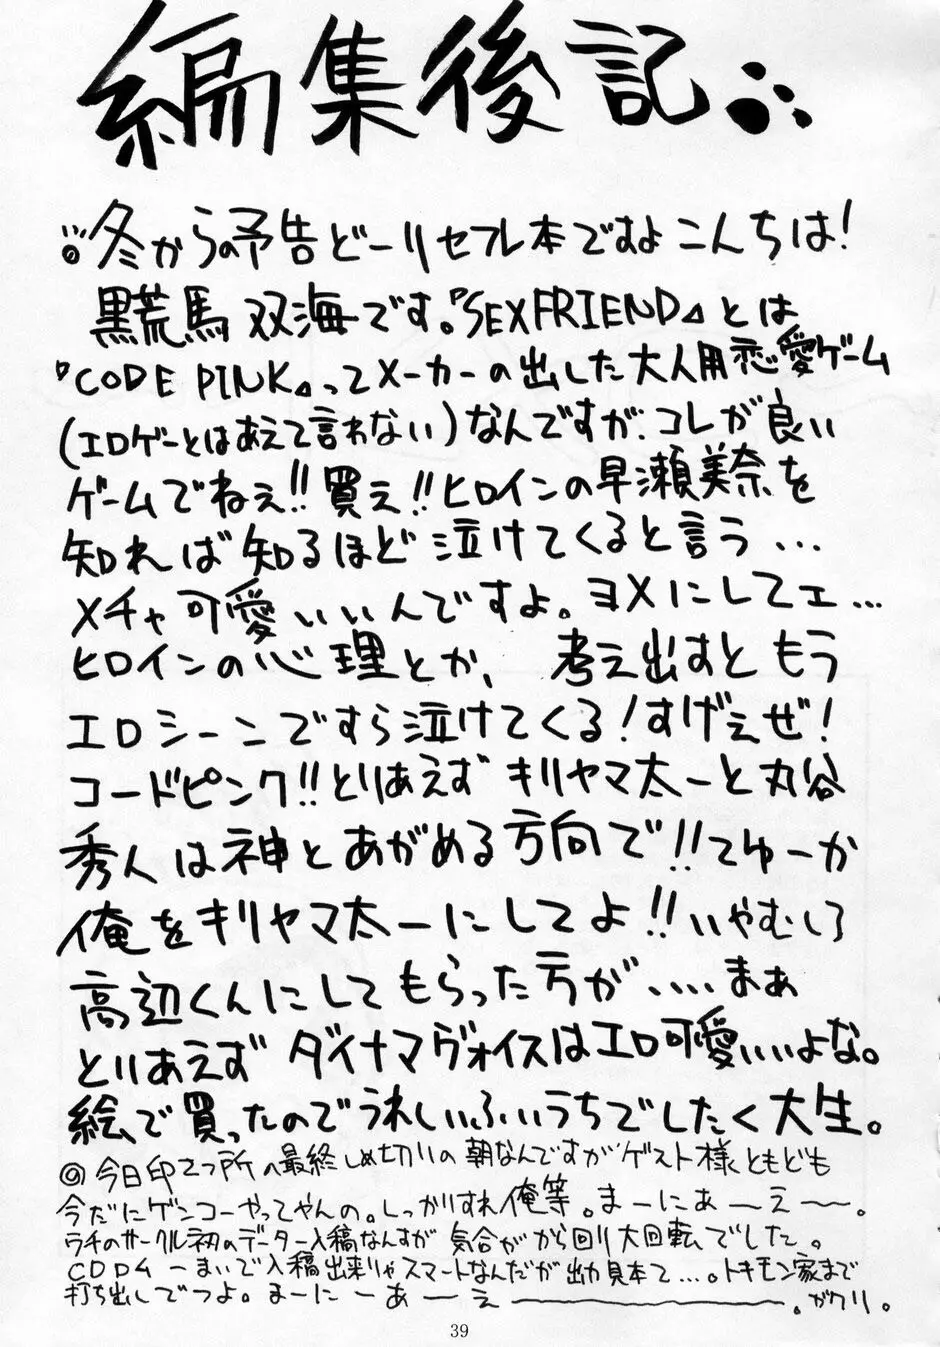 編集後記
◎冬からの予告どーりセフレ本ですよこんちは!
黒荒馬双海です。『SEXFRIEND』とは
『CODE PINK』ってメーカーの出した大人用恋愛ゲーム
(エロゲーとはあえて言わない)なんですが、コレが良い
ゲームでねぇ!!買え!!ヒロインの早瀬美奈を
知れば知るほど泣けてくると言う…
メチャ可愛いいんですよ。ヨメにしてェ…
ヒロインの心理とか、考え出すともう
エロシーンですら泣けてくる!すげぇぜ!
コードピンク!!とりあえずキリヤマ太一と丸谷
秀人は神とあがめる方向で!!てゆーか
俺をキリヤマ太一にしてよ!!いやむしろ
高辺くんにしてもらった方が、…まぁ
とりあえずダイナマヴォイスはエロ可愛いいよな。
絵で買ったのでうれしいふいうちでしたく大生。
◎今日印さつ所の最終しめ切りの朝なんですがゲスト様ともども
今だにゲンコーやってやんの。しっかりすれ俺等。まーにぁーえー〜。
ウチのサークル初のデーター入稿なんすが気合がから回り大回転でした。
CD一まいで入稿出来りゃスマートなんだが出力見本て…。トキモン家まで
打ち出しでつよ。まーにーあーえー――。ガクリ。
39